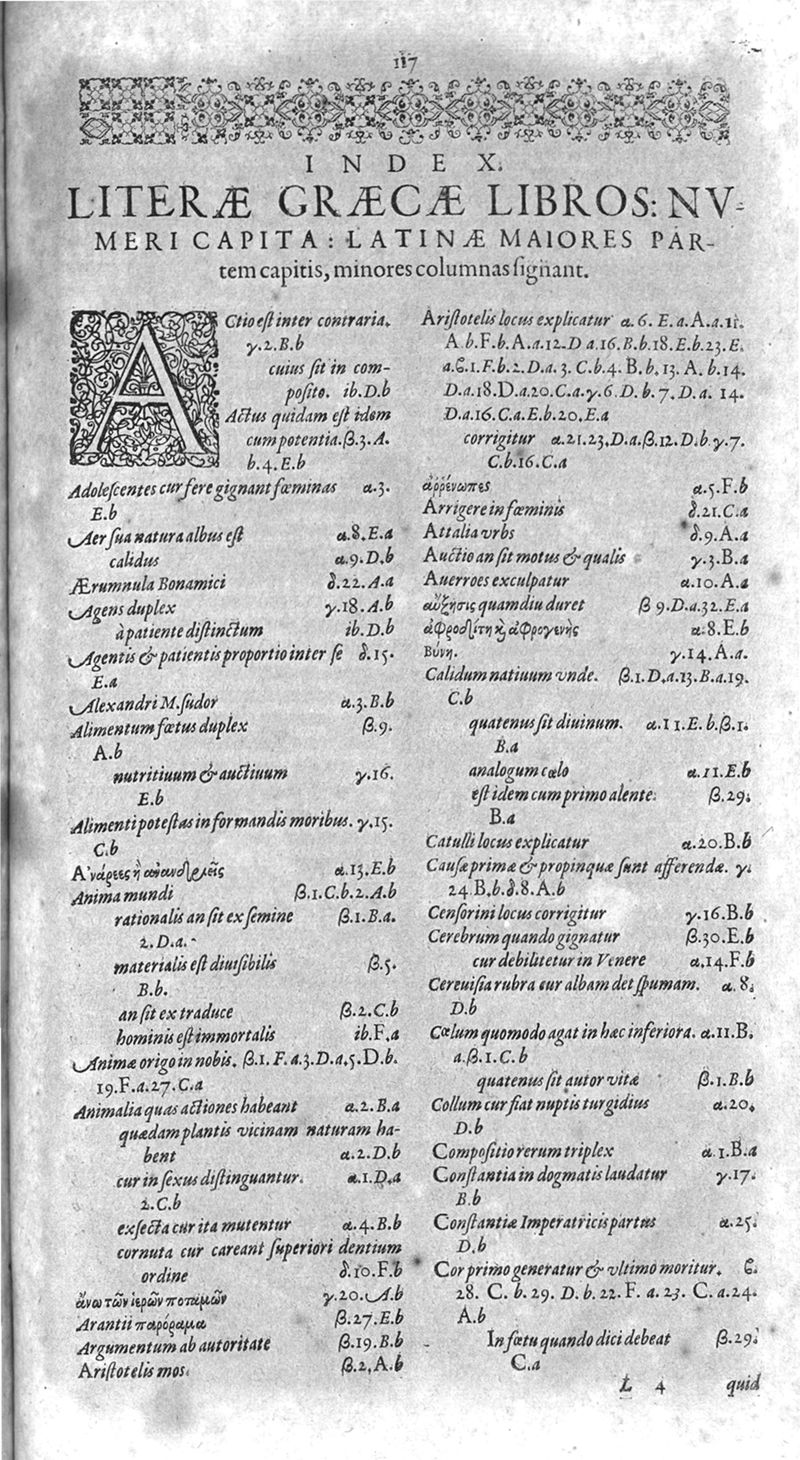 117
INDEX.
LITERÆ GRÆCÆ LIBROS: NV-
MERI CAPITA: LATINÆ MAIORES PAR-
tem capitis, minores columnas ſignant.
ACtio eſt inter contraria.
γ.2.B.b
cuius ſit in com-
poſito. ib.D.b
Actus quidam eſt idem
cum potentia.β.3.A.
b.4.E.b
Adoleſcentes cur fere gignant fœminas α.3.
E.b
Aer ſua natura albus eſt α.8.E.a
calidus α.9.D.b
Ærumnula Bonamici δ.22.A.a
Agens duplex γ.18.A.b
à patiente diſtinctum ib.D.b
Agentis & patientis proportio inter ſe δ.15.
E.a
Alexandri M. ſudor α.3.B.b
Alimentum fœtus duplex β.9.
A.b
nutritiuum & auctiuum γ.16.
E.b
Alimenti poteſtas in formandis moribus. γ.15.
C.b
α.13.E.b
Anima mundi β.1.C.b.2.A.b
rationalis an ſit ex ſemine β.1.B.a.
2.D.a.
materialis eſt diuiſibilis β.5.
B.b.
an ſit ex traduce β.2.C.b
hominis eſt immortalis ib.F.a
Animæ origo in nobis. β.1.F.a.3.D.a.5.D.b.
19.F.a.27.C.a
Animalia quas actiones habeant α.2.B.a
quædam plantis vicinam naturam ha-
bent α.2.D.b
cur in ſexus diſtinguantur. α.1.D.a
2.C.b
exſecta cur ita mutentur α.4.B.b
cornuta cur careant ſuperiori dentium
ordine δ.10.F.b
ἄνω τῶν ἱερῶν ποταμῶν γ.20.A.b
Arantii παρόραμα β.27.E.b
Argumentum ab autoritate β.19.B.b
Ariſtotelis mos. β.2.A.b
Ariſtotelis locus explicatur α.6.E.a.A.a.11.
A.b.F.b.A.a.12.D a.16.B.b.18.E.b.23.E.
a.β.1.F.b.2.D.a.3.C.b.4.B.b.13.A.b.14.
D.a.18.D.a.20.C.a.γ.6.D.b.7.D.a.14.
D.a.16.C.a.E.b.20.E.a
corrigitur α.21.23.D.a.β.12.D.b.γ.7.
C.b.16.C.a
ἀῤῥένωπες α.5.F.b
Arrigere in fœminis δ.21.C.a
Attalia vrbs δ.9.A.a
Auctio an ſit motus & qualis γ.3.B.a
Auerroes exculpatur α.10.A.a
αὔξησις quamdiu duret β 9.D.a.32.E.a
ἀφροδίτη κὶ ἀφρογενὴς α.8.E.b
Βύνη. γ.14.A.a.
Calidum natiuum vnde. β.1.D.a.13.B.a.19.
C.b
quatenus ſit diuinum. α.11.E.b.β.1.
B.a
analogum cœlo α.11.E.b
eſt idem cum primo alente. β.29.
B.a
Catulli locus explicatur α.20.B.b
Cauſæ primæ & propinquæ ſunt afferendæ. γ.
24.B.b.δ.8.A.b
Cenſorini locus corrigitur γ.16.B.b
Cerebrum quando gignatur β.30.E.b
cur debilitetur in Venere α.14.F.b
Cereuiſia rubra cur albam det ſpumam. α.8.
D.b
Cœlum quomodo agat in hæc inferiora. α.11.B.
a.β.1.C.b
quatenus ſit autor vitæ β.1.B.b
Collum cur fiat nuptis turgidius α.20.
D.b
Compoſitio rerum triplex α.1.B.a
Conſtantia in dogmatis laudatur γ.17.
B.b
Conſtantiæ Imperatricis partus α.25.
D.b
Cor primo generatur & vltimo moritur. β.
28.C.b.29.D.b.22.F.a.23.C.a.24.
A.b
In fœtu quando dici debeat β.29.
C.a
L 4 quid